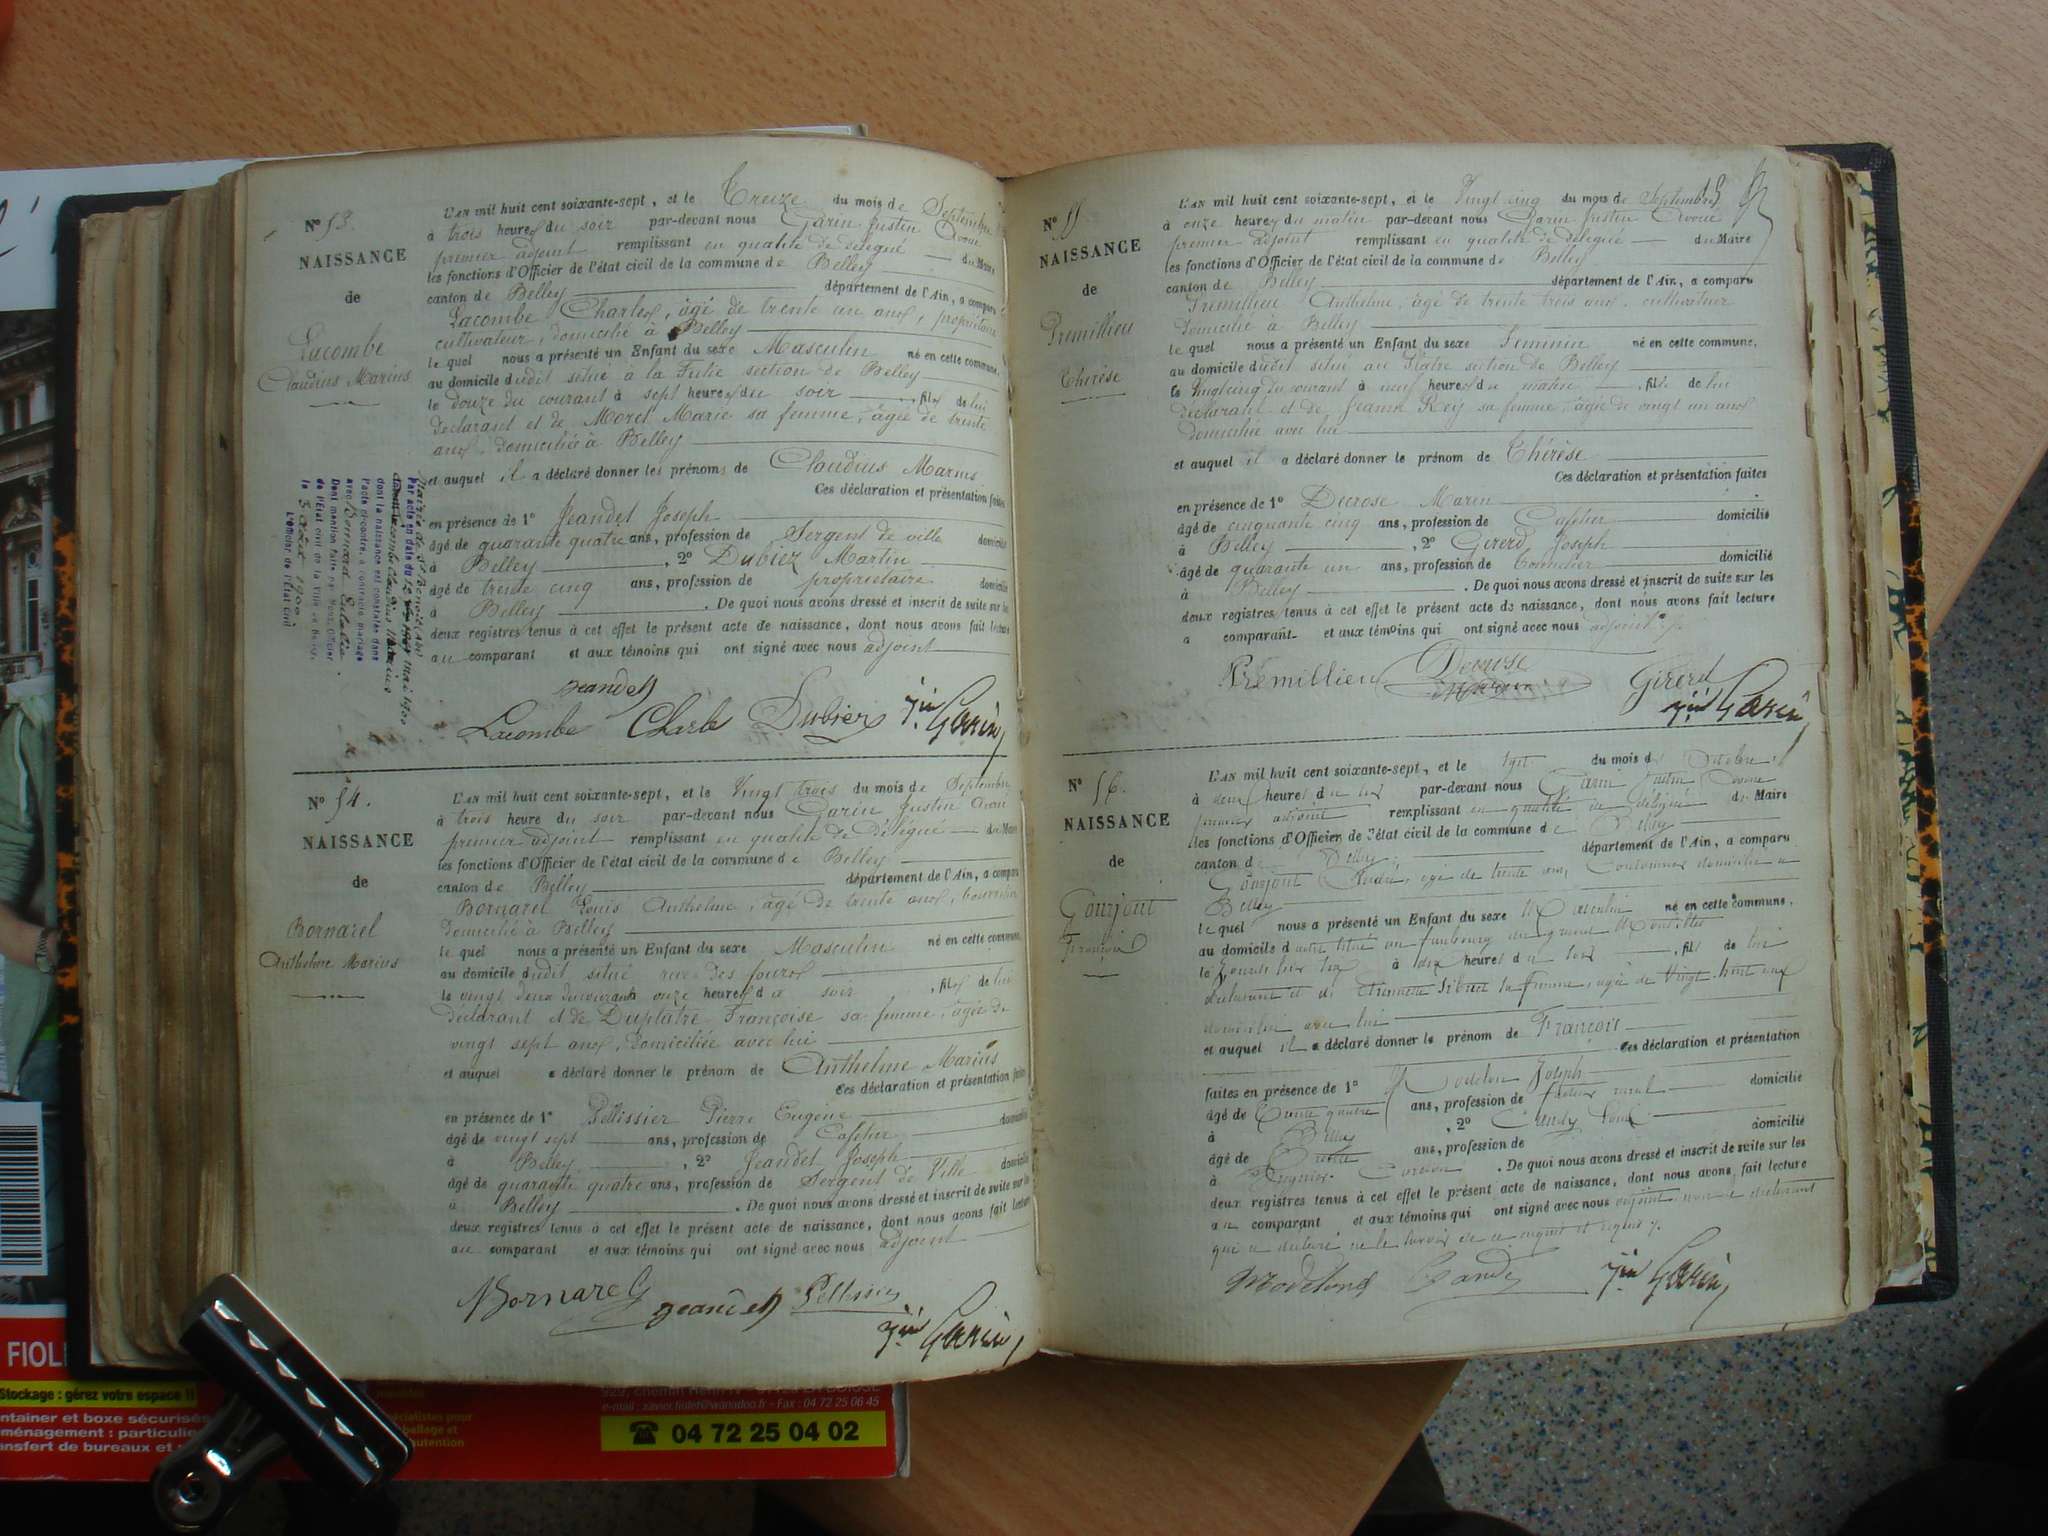 Nº 53.
NAISSANCE
de
Lacombe
Claudius Marius
L'AN mil huit cent soixante-sept, et le Treize du mois de Septembre
à trois heures du soir par-devant nous Garin Justin Avoué
premier adjoint remplissant en qualité de délégué du Maire
les fonctions d'Officier de l'état civil de la commune de Belley
canton de Belley département de l'Ain, a comparu
Lacombe Charles, âgé de trente un ans, propriétaire
cultivateur, domicilié à Belley
le quel nous a présenté un Enfant du sexe Masculin né en cette commune,
au domicile dudit situé à la section de Belley
le douze du courant à sept heures du soir, fils de lui
déclarant et de Morel Marie sa femme, âgée de trente
ans, domiciliée à Belley
et auquel il a déclaré donner les prénoms de Claudius Marius
Ces déclaration et présentation faites
en présence de 1º Jeandet Joseph
âgé de quarante quatre ans, profession de Sergent de ville domicilié
à Belley, 2º Dubiez Martin
âgé de trente cinq ans, profession de propriétaire domicilié
à Belley. De quoi nous avons dressé et inscrit de suite sur les
deux registres tenus à cet effet le présent acte de naissance, dont nous avons fait lecture
au comparant et aux témoins qui ont signé avec nous adjoint
Jeandet
Lacombe Charle Dubiez Jin Garin
Par acte en date du 12 mai 1900
dont la naissance est constatée dans
l'acte ci-contre, a contracté mariage
avec Bornard Eulalie
Dont mention faite par Nous, Officier
de l'État civil de la Ville de Belley,
le 3 août 1900
L'Officier de l'État Civil
Nº 54.
NAISSANCE
de
Bornarel
Anthelme Marius
L'AN mil huit cent soixante-sept, et le Vingt trois du mois de Septembre
à trois heure du soir par-devant nous Garin Justin Avoué
premier adjoint remplissant en qualité de Délégué du Maire
les fonctions d'Officier de l'état civil de la commune de Belley
canton de Belley département de l'Ain, a comparu
Bornarel Louis Anthelme, âgé de trente ans,
domicilié à Belley
le quel nous a présenté un Enfant du sexe Masculin né en cette commune,
au domicile dudit situé rue des fours
le vingt deux du courant onze heures du soir, fils de lui
déclarant et de Duplatre Françoise sa femme, âgée de
vingt sept ans, domiciliée avec lui
et auquel a déclaré donner le prénom de Anthelme Marius
Ces déclaration et présentation faites
en présence de 1º Pellissier Pierre Eugène
âgé de vingt sept ans, profession de Cafetier domicilié
à Belley, 2º Jeandet Joseph
âgé de quarante quatre ans, profession de Sergent de Ville domicilié
à Belley. De quoi nous avons dressé et inscrit de suite sur les
deux registres tenus à cet effet le présent acte de naissance, dont nous avons fait lecture
au comparant et aux témoins qui ont signé avec nous adjoint
Bornarel Jeandet Pellissier
Jin Garin
Nº 55
NAISSANCE
de
Premillieu
Thérèse
L'AN mil huit cent soixante-sept, et le Vingt cinq du mois de Septembre
à onze heures du matin par-devant nous Garin Justin Avoué
premier adjoint remplissant en qualité de délégué du Maire
les fonctions d'Officier de l'état civil de la commune de Belley
canton de Belley département de l'Ain, a comparu
Premillieu Anthelme, âgé de trente trois ans, cultivateur
domicilié à Belley
le quel nous a présenté un Enfant du sexe Féminin né en cette commune,
au domicile dudit situé au section de Belley
le Vingt cinq du courant à neuf heures du matin, fille de lui
déclarant et de Jeanne Rey sa femme, âgée de vingt un ans
domiciliée avec lui
et auquel il a déclaré donner le prénom de Thérèse
Ces déclaration et présentation faites
en présence de 1º Decrose Marin
âgé de cinquante cinq ans, profession de Cafetier domicilié
à Belley, 2º Gererd Joseph
âgé de quarante un ans, profession de domicilié
à Belley. De quoi nous avons dressé et inscrit de suite sur les
deux registres tenus à cet effet le présent acte de naissance, dont nous avons fait lecture
a comparant et aux témoins qui ont signé avec nous adjoint
Prémillieu Decrose Girerd
Marin Jin Garin
Nº 56.
NAISSANCE
de
Gourjout
François
L'AN mil huit cent soixante-sept, et le sept du mois d'Octobre
à heures du soir par-devant nous Garin Justin Avoué
premier adjoint remplissant en qualité de délégué du Maire
les fonctions d'Officier de l'état civil de la commune de Belley
canton de Belley département de l'Ain, a comparu
Gourjout, âgé de trente ans, Cordonnier domicilié à
Belley
le quel nous a présenté un Enfant du sexe Masculin né en cette commune,
au domicile dudit situé au faubourg du
le à heures du soir, fils de lui
déclarant et de sa femme, âgée de Vingt huit ans
domiciliée avec lui
et auquel il a déclaré donner le prénom de François
Ces déclaration et présentation
faites en présence de 1º Joseph
âgé de trente quatre ans, profession de facteur rural domicilié
à Belley, 2º
âgé de trente ans, profession de domicilié
à. De quoi nous avons dressé et inscrit de suite sur les
deux registres tenus à cet effet le présent acte de naissance, dont nous avons fait lecture
au comparant et aux témoins qui ont signé avec nous adjoint, non le déclarant
qui a déclaré ne le savoir de ce enquis et requis
Jin Garin
FIOL
Stockage : gérez votre espace !!
ntainer et boxe sécurisés
ménagement : particulie
nsfert de bureaux et
écialistes pour
ballage et
utention
e-mail : xavier.fiolet@wanadoo.fr - Fax : 04 72 25 06 45
☎ 04 72 25 04 02